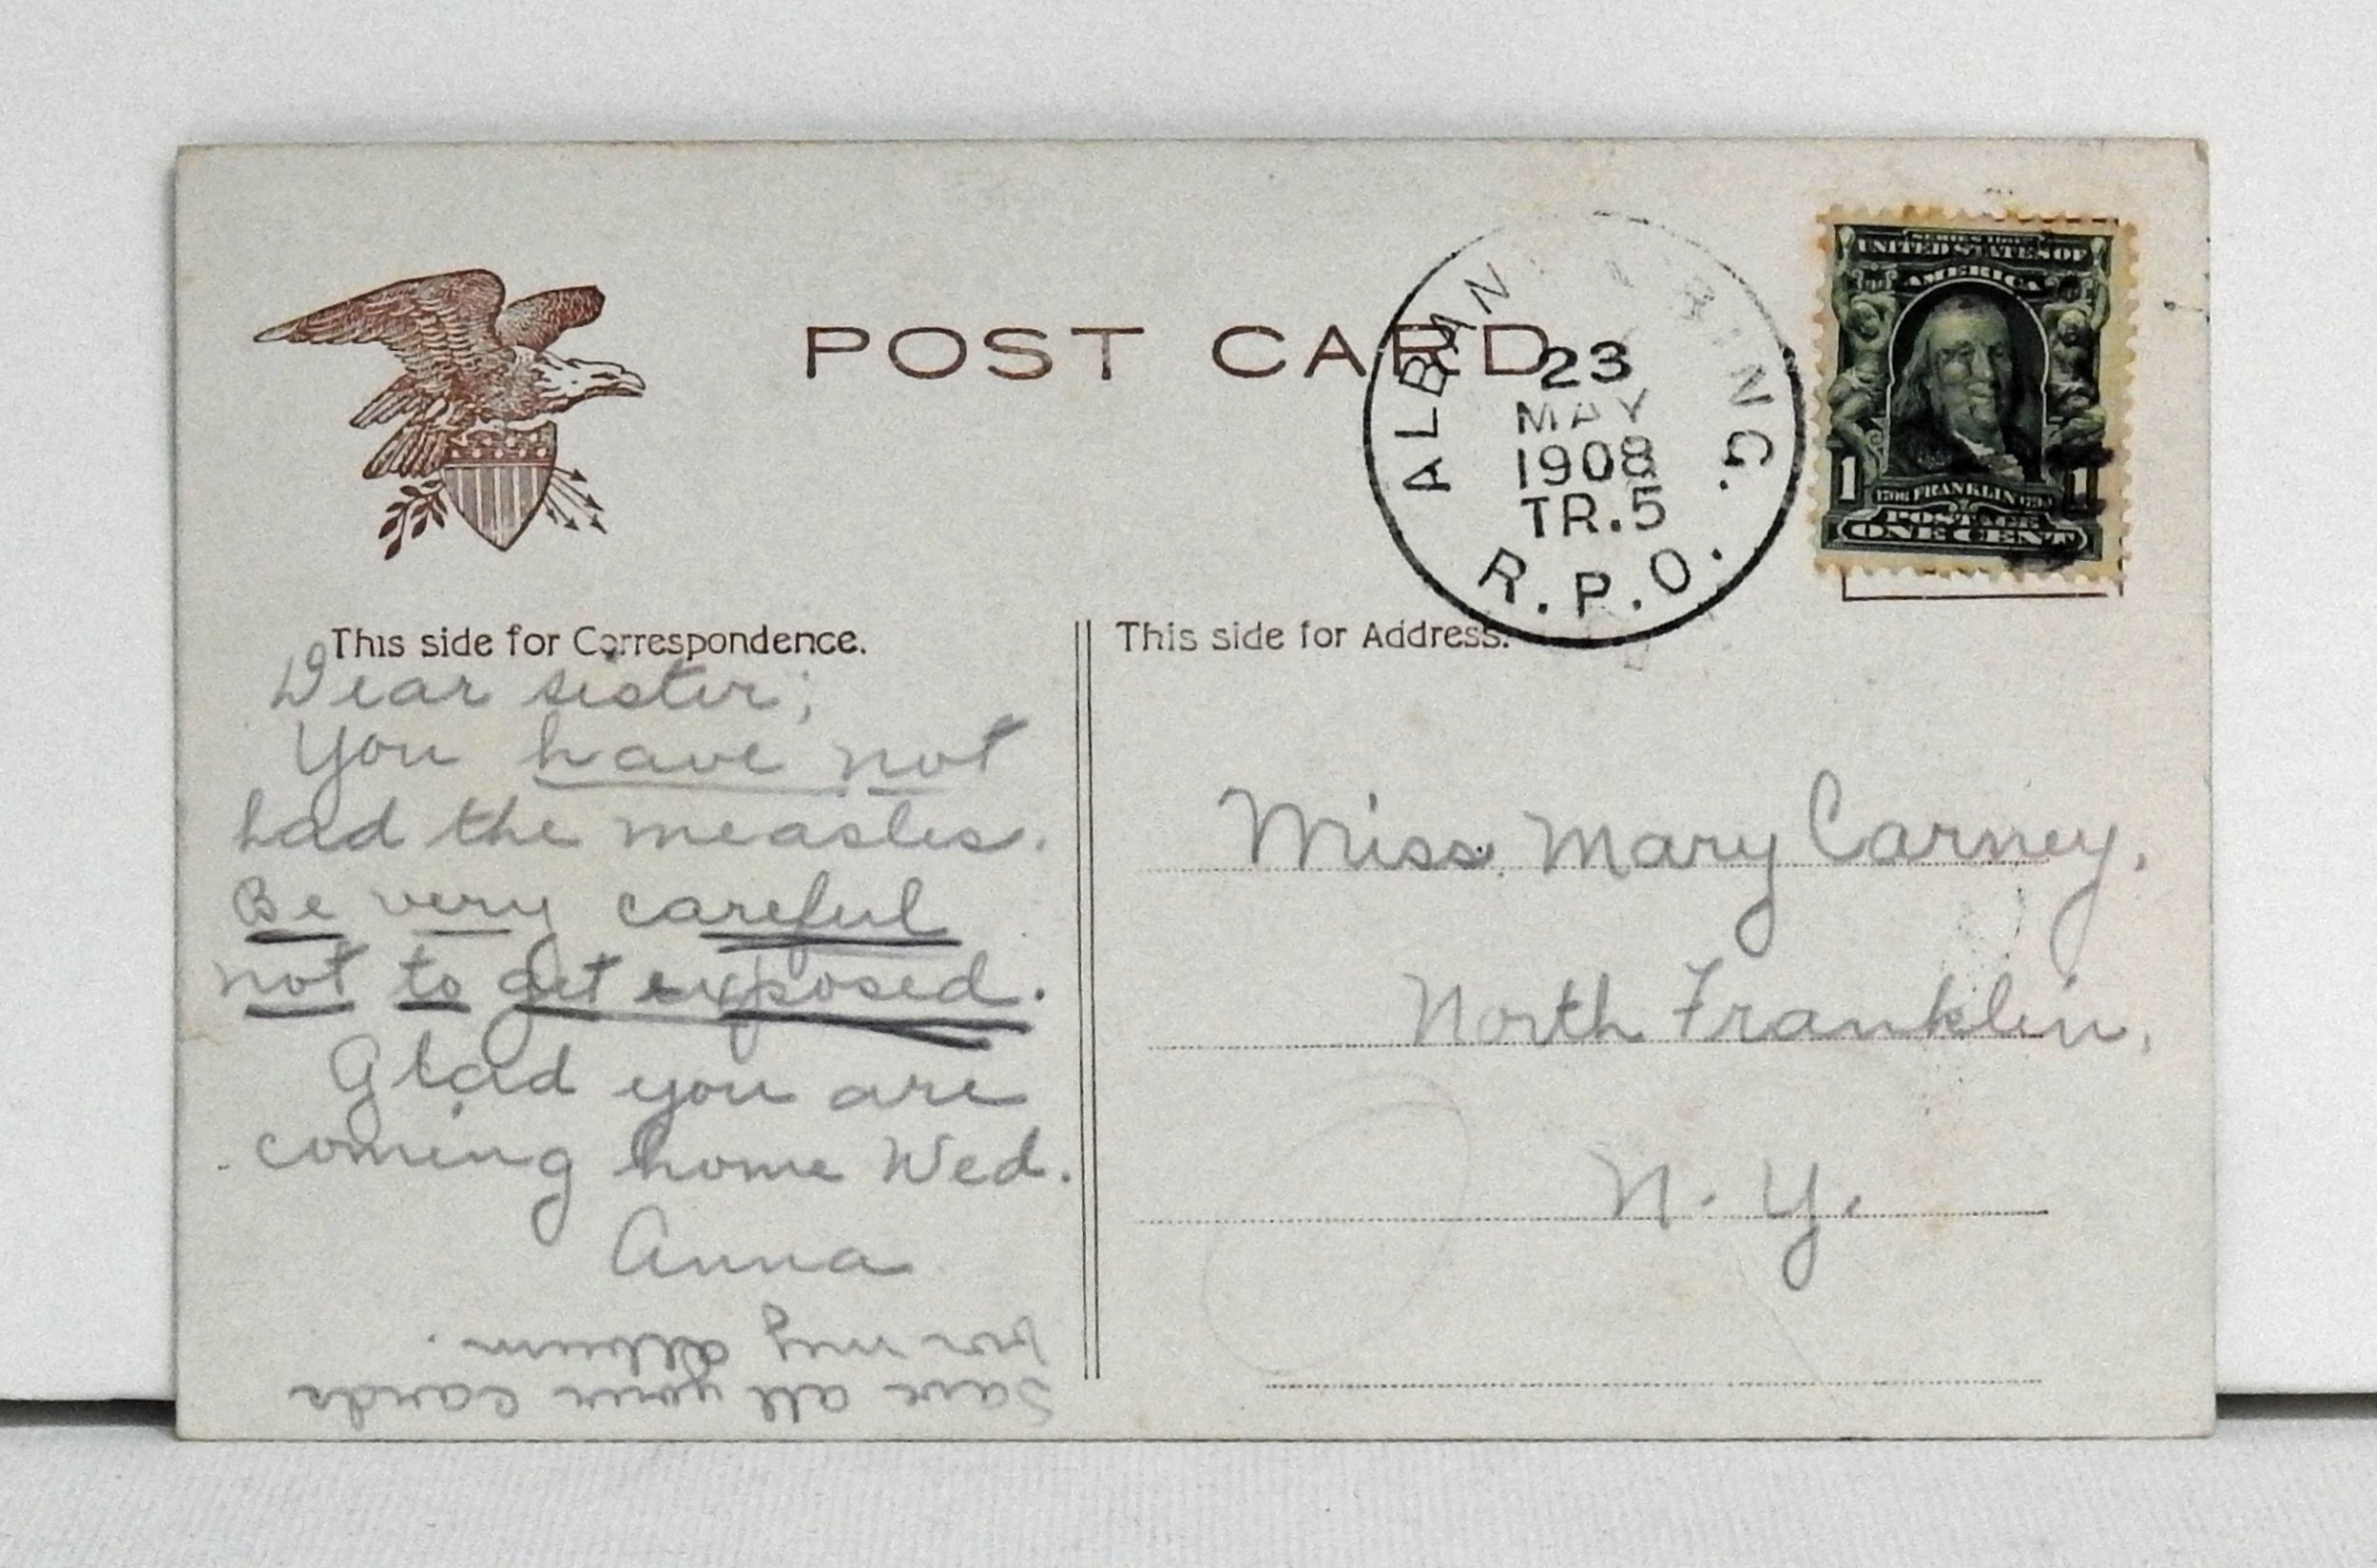 POST CARD
ALBAN
BING.
23
MAY
1908
TR.5
R.P.O.
SERIES 1902
UNITED STATES OF
AMERICA
1 1706 FRANKLIN 1790 1
POSTAGE
ONE CENT
This side for Correspondence.
Dear sister;
You have not
had the measles.
Be very careful
not to get exposed.
Glad you are
coming home Wed.
Anna
Save all your cards
for my album.
This side for Address.
Miss. Mary Carney.
North Franklin,
N. Y.